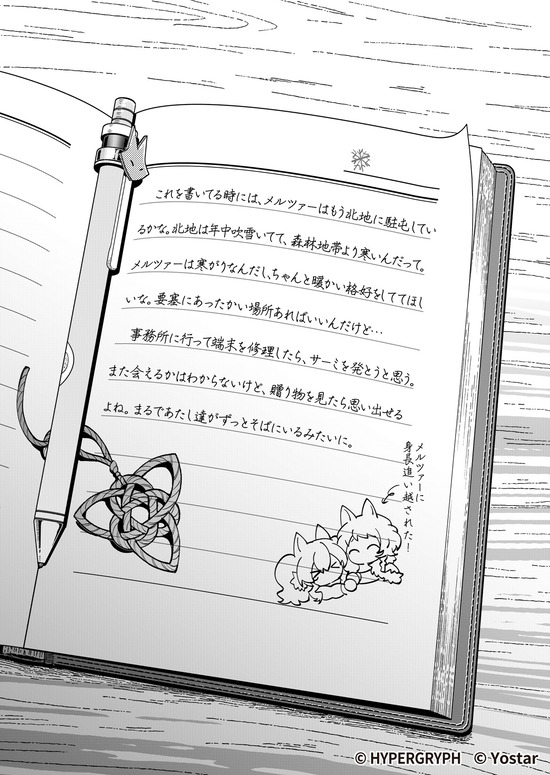 これを書いてる時には、メルツァーはもう北地に駐屯してい
るかな。北地は年中吹雪いてて、森林地帯より寒いんだって。
メルツァーは寒がりなんだし、ちゃんと暖かい格好をしててほし
いな。要塞にあったかい場所あればいいんだけど…
事務所に行って端末を修理したら、サーミを発とうと思う。
また会えるかはわからないけど、贈り物を見たら思い出せる
よね。まるであたし達がずっとそばにいるみたいに。
メルツァーに
身長追い越された!
© HYPERGRYPH © Yostar